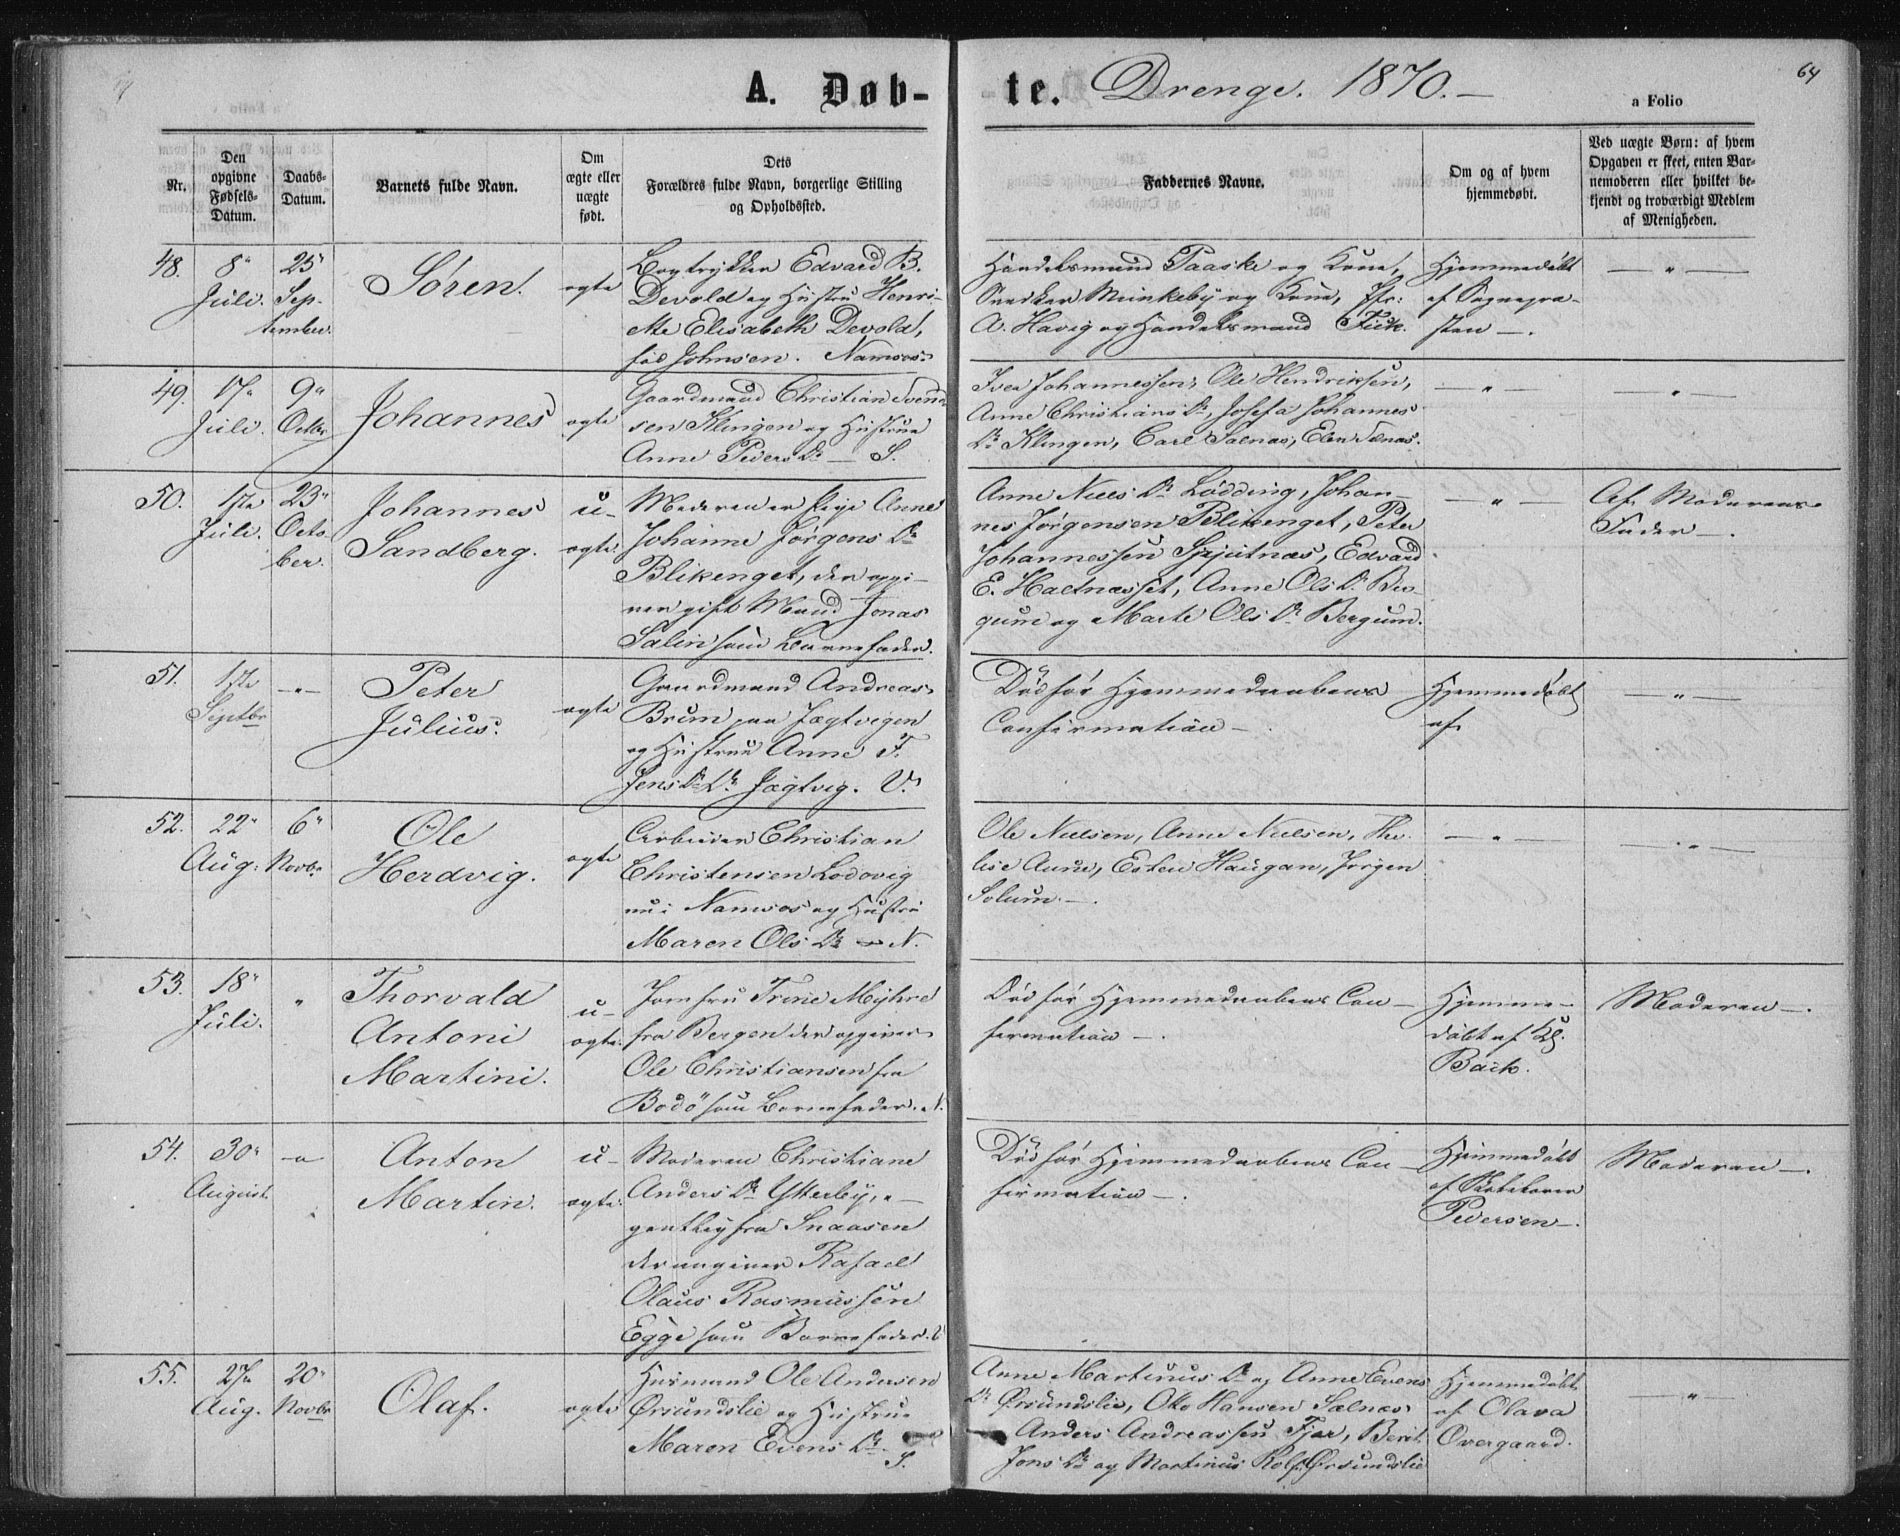 A. Døb-
te. Drenge. 1870.—
64
a Folio
Nr.
Den
opgivne
Fødsels-
Datum.
Daabs-
Datum.
Barnets fulde Navn.
Om
ægte eller
uægte
født.
Dets
Forældres fulde Navn, borgerlige Stilling
og Opholdssted.
Faddernes Navne.
Om og af hvem
hjemmedøbt.
Ved uægte Børn: af hvem
Opgaven er skeet, enten Bar-
nemoderen eller hvilket be-
kjendt og troværdigt Medlem
af Menigheden.
48.
8"
Juli.
25"
Sep-
tember.
Søren.
ægte
Bogtrykker Edvard B.
Devold og Hustru Henri-
ette Elisabeth Devold,
fød Johnsen. Namsos.
Handelsmand Paaske og Kone,
Snedker Meinkeby og Kone, Jfr:
A. Havig og Handelsmand Fick.
Hjemmedøbt
af Sognepræ-
sten —.
— " —
49.
17"
Juli.
9"
Octbr
Johannes
ægte
Gaardmand Christian Svend-
sen Klingen og Hustru
Anne Peders Dr — S.
Iver Johannessen, Ole Hendriksen,
Anne Christians Dr, Josefa Johannes
Dr Klingen, Carl Sælnæs, Elen Sælnæs.
— " —
— " —
50.
1ste
Juli.
23"
Octo-
ber.
Johannes
Sandberg.
u-
ægte.
Moderen er Pige Anne
Johanne Jørgens Dr
Blikenget, der opgi-
ver gift Mand Jonas
Salin som Barnefader.
Anne Niels Dr Lødding, Johan-
nes Jørgensen Blikenget, Peter
Johannessen Spjutnæs, Edvard
E. Haltnæsset, Anne Ols Dr Ber-
gum og Marte Ols Dr Bergum.
— " —
Af Moderens
Fader —.
51.
1ste
Septbr
— " —
Peter
Julius.
ægte
Gaardmand Andreas
Brun paa Jægtvigen
og Hustru Anne F.
Jens Dr Jægtvig. V.
Død før Hjemmedaabens
Confirmation —.
Hjemmedøbt
af
— " —
52.
22"
Aug:
6"
Novbr
Ole
Herdvig.
ægte
Arbeider Christian
Christensen Lodovig
nu i Namsos og Hustru
Maren Ols Dr — N.
Ole Nielsen, Anne Nielsen, The-
lise Aune, Esten Haugan, Jørgen
Solum —.
— " —
— " —
53.
18"
Juli.
"
Thorvald
Antoni
Martini.
u-
ægte.
Jomfru Trine Myhre
fra Bergen der opgiver
Ole Christiansen fra
Bodø som Barnefader. N.
Død før Hjemmedaabens Con-
firmation —.
Hjemme-
døbt af Kl.
Bach.
Moderen —.
54.
30"
August
— " —
Anton
Martin.
u-
ægte.
Moderen Christiane
Anders Dr Ytterby, e-
gentlig fra Snaasen
der angiver Rafael
Olaus Rasmussen
Egge som Barnefader. V
Død før Hjemmedaabens Con-
firmation —.
Hjemmedøbt
af Skolelærer
Pedersen —.
Moderen —.
55.
27"
Aug.
20"
Novbr
Olaf.
ægte
Husmand Ole Andersen
Ørsundslie og Hustru
Maren Evens Dr.
S.
Anne Martinus Dr og Anne Evens
Dr Ørsundslie, Oto Hansen Sælnæs
Anders Andreassen Fjær, Berit
Jons Dr og Martinus Rolf. Ørsundslie
Hjemmedøbt
af Olava
Overgaard.
— " —